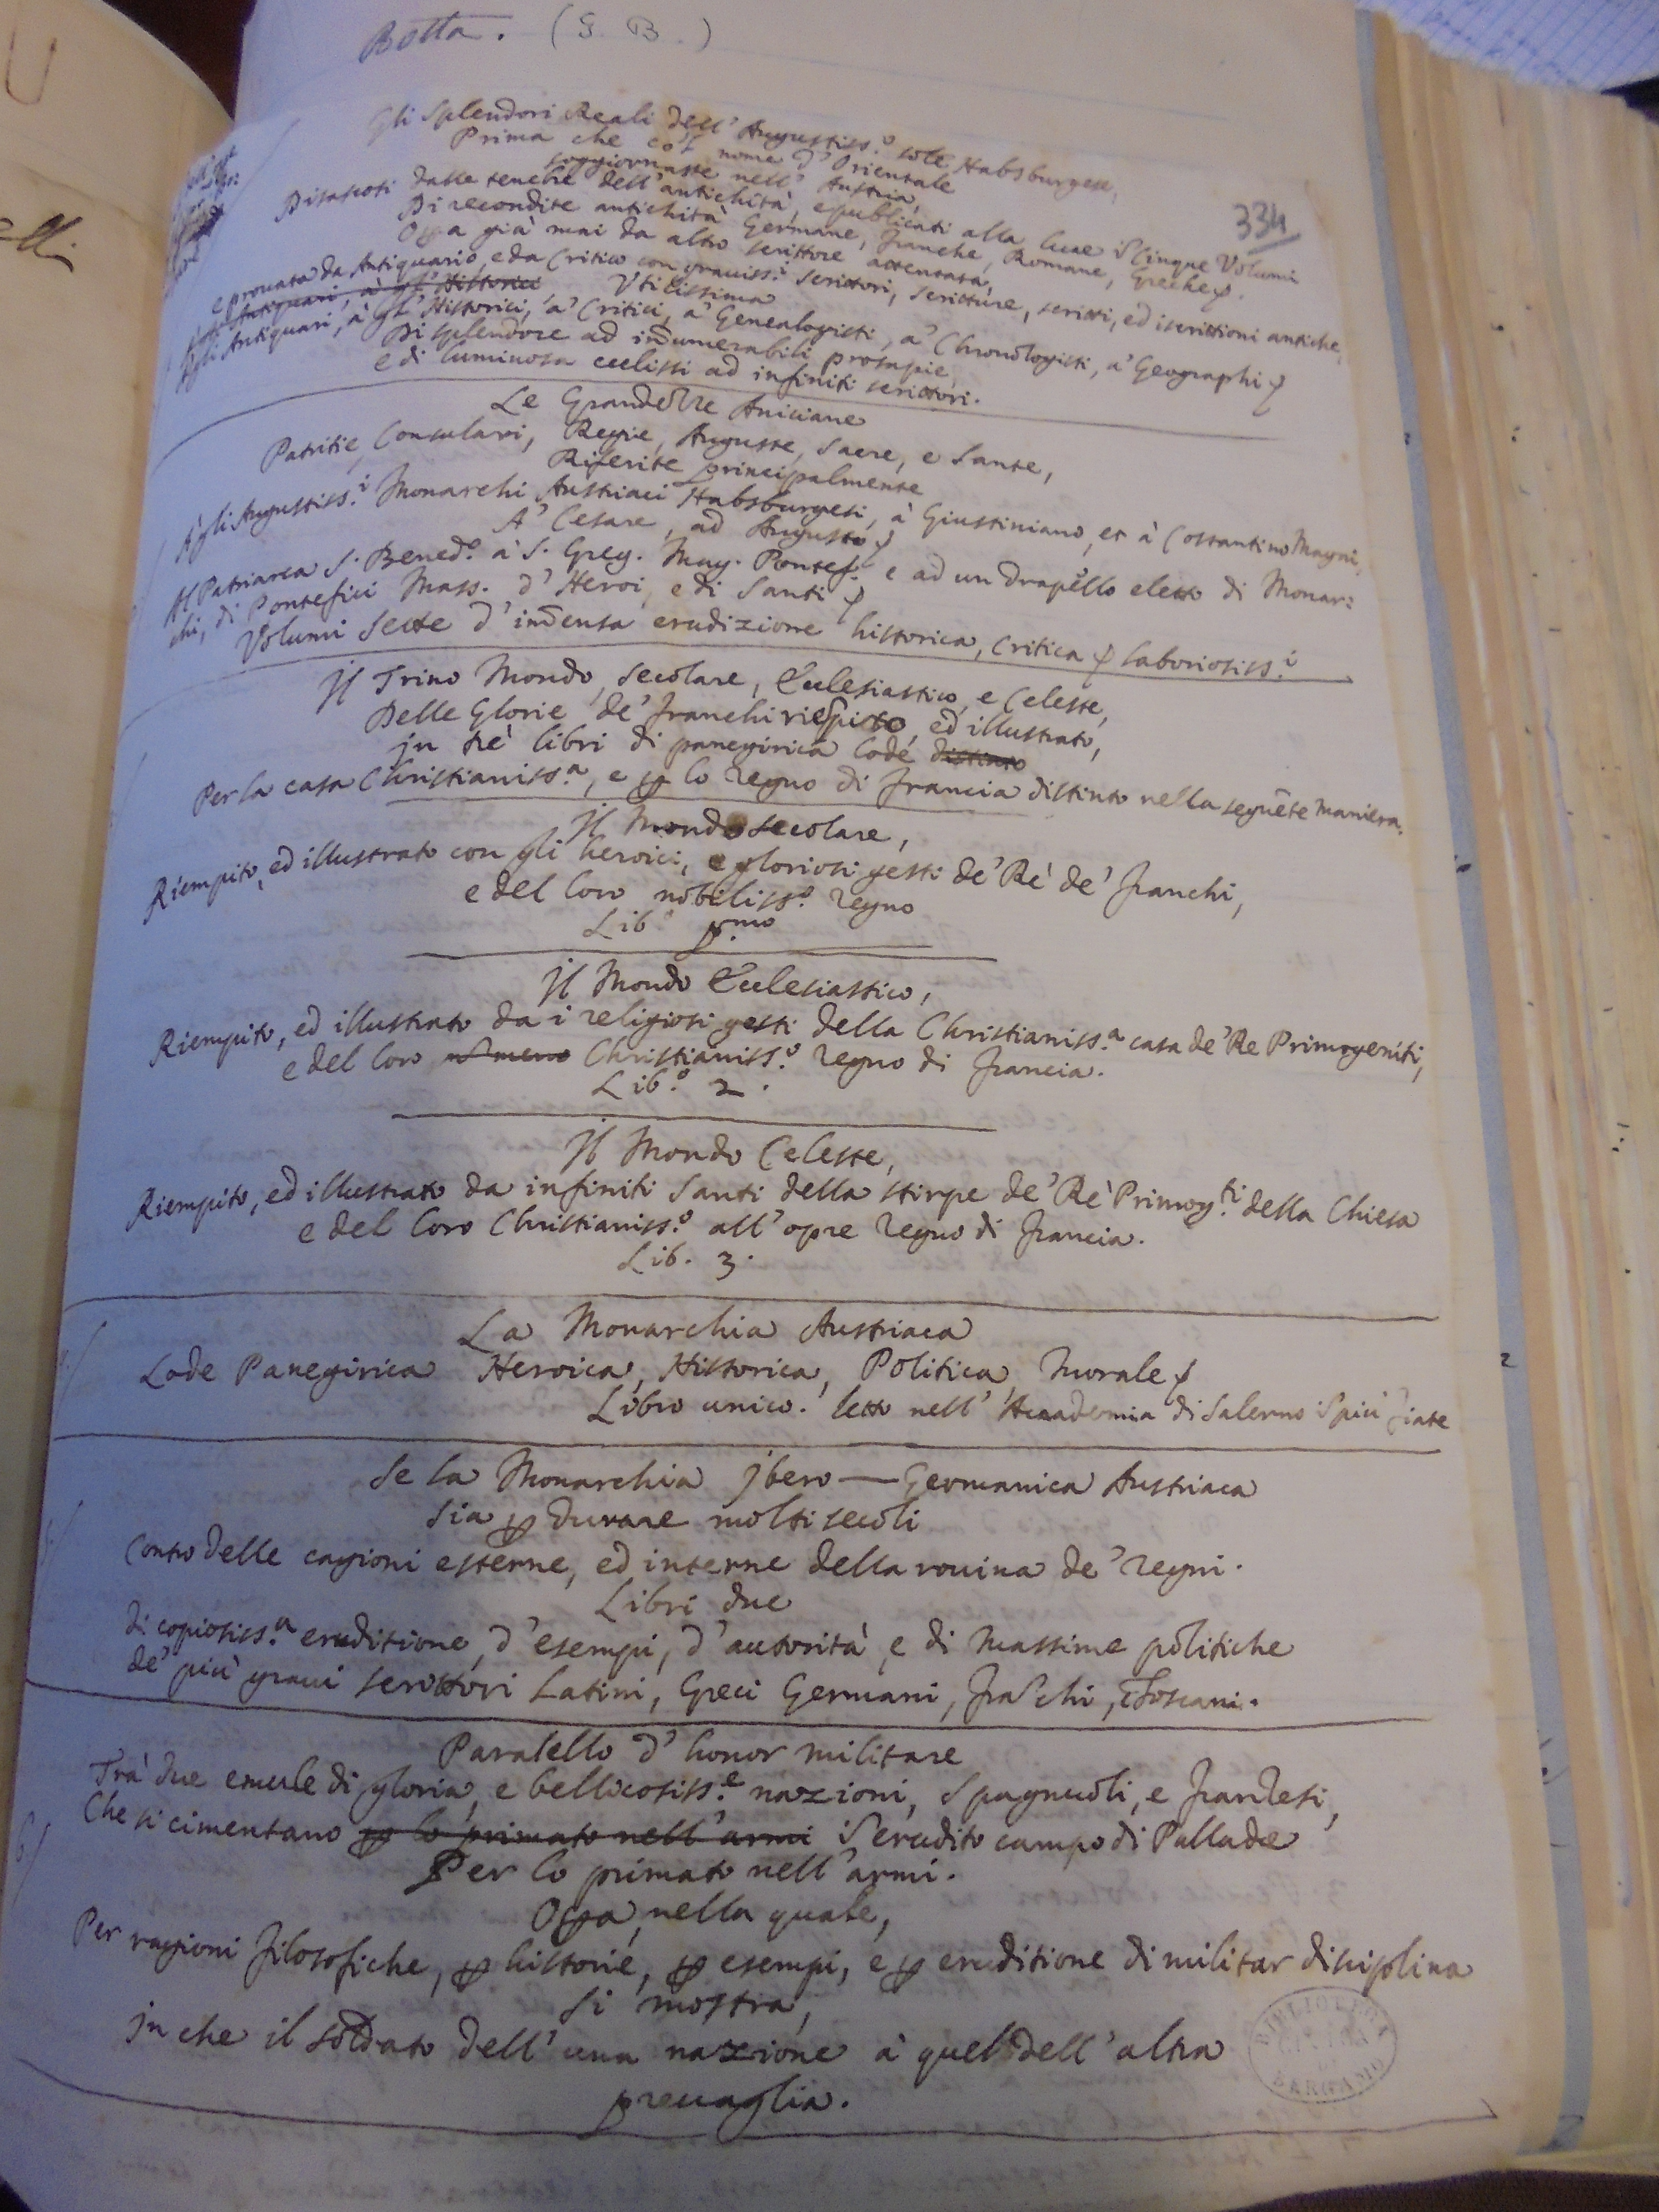 Botta. (G. B.)
334
Gli Splendori Reali dell' Augustiss.º sole Habsburgese,
Prima che col nome d'Orientale
soggiornasse nell' Austria,
Disascosti dalle tenebre dell' antichità, e publicati alla luce i Cinque Volumi
Di recondite antichità Germane, Franche, Romane, Greche
Opa già mai da altro scrittore attentata,
e prouata da Antiquario, e da Critico con grauiss.i Scrittori, scritture, scritti, ed iscrittioni antiche,
Vtilissima
Agli Antiquari, à gl' Historici, a' Critici, a' Genealogisti, a' Chronologisti, a' Geographi
Di splendore ad in̄umerabili prosapie,
e di luminosa ecclissi ad infiniti scrittori.
Le Grandezze Aniciane
Patritie, Consulari, Regie, Auguste, Sacre, e Sante,
Riferite principalmente
Agli Augustiss.i Monarchi Austriaci Habsburgesi, à Giustiniano, et à Costantino Magni,
A' Cesare, ad Augusto
Al Patriarca S. Bened.º à S. Greg. Mag. Pontef. e ad un drapello eletto di Monar:
chi, di Pontefici Mass. d' Heroi, e di Santi
Volumi Sette d' im̄ensa erudizione historica, critica laboriosiss.i
Il Trino Mondo, secolare, Ecclesiastico, e Celeste,
Delle Glorie de' Franchi riempito, ed illustrato,
in trè libri di panegirica lode distinto
Per la casa Christianiss.a, e ꝑ lo regno di Francia distinto nella seguēte maniera.
Il Mondo secolare,
Riempito, ed illustrato con gli heroici, e gloriosi gesti de' Rè de' Franchi,
e del loro nobiliss.º regno
Lib.º p.mo
Il Mondo Ecclesiastico,
Riempito, ed illustrato da i religiosi gesti della Christianiss.a casa de' Re Primogeniti,
e del loro Christianiss.º regno di Francia.
Lib.º 2.
Il Mondo Celeste,
Riempito, ed illustrato da infiniti Santi della stirpe de' Rè Primog.ti della Chiesa
e del loro Christianiss.º all' opre regno di Francia.
Lib. 3.
La Monarchia Austriaca
Lode Panegirica Heroica, Historica, Politica, Morale
Libro unico. letto nell' Accademia di Salerno i più fiate
Se la Monarchia Ibero — Germanica Austriaca
Sia ꝑ durare molti secoli
Conto delle cagioni esterne, ed interne della rouina de' regni.
Libri due
di copiosiss.a eruditione, d' esempi, d' autorità, e di massime politiche
de' più graui scrittori Latini, Greci Germani, Frāchi, Toscani.
Paralello d' honor militare
Trà due emule di gloria, e bellicosiss.e nazioni, Spagnuoli, e Franzesi,
Che si cimentano ꝑ lo primato nell' armi i erudito campo di Pallade
Per lo primato nell' armi.
Opa, nella quale,
Per ragioni filosofiche, ꝑ historie, ꝑ esempi, e ꝑ eruditione di militar disciplina
Si mostra,
in che il soldato dell' una nazione à quel dell' altra
preuaglia.
6/
BIBLIOTECA
CIVICA
BERGAMO